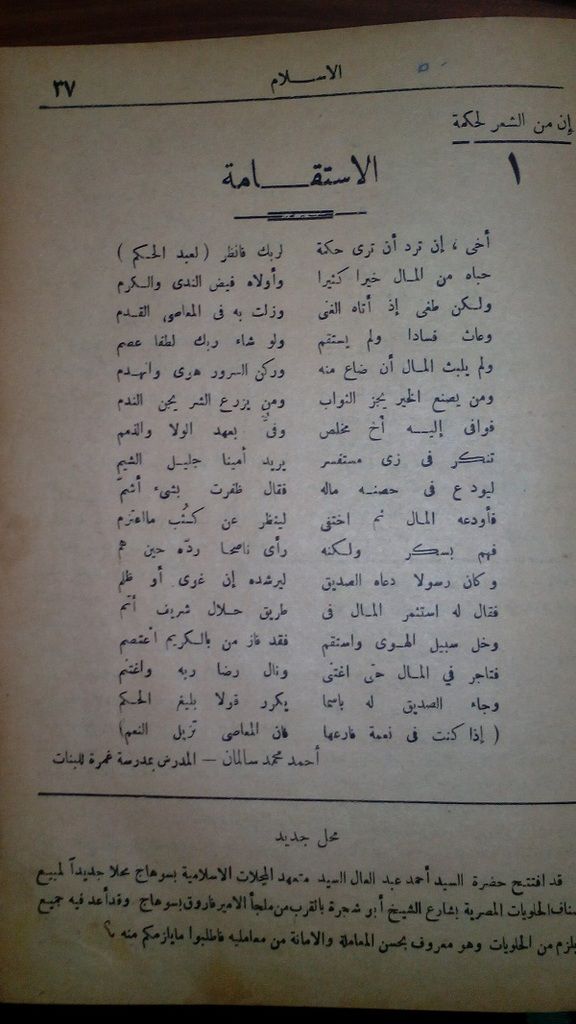 الاسلام
٣٧
إن من الشعر لحكمة
١
الاستقامة
أخى ، إن ترد أن ترى حكمة لربك فانظر ( لعبد الحكم )
حباه من المال خيرا كثيرا وأولاه فيض الندى والكرم
ولكن طغى إذ أتاه الغنى وزلت به فى المعاصى القدم
وعاث فسادا ولم يستقم ولو شاء ربك لطفا عصم
ولم يلبث المال أن ضاع منه وركن السرور هوى وانهدم
ومن يصنع الخير يجز الثواب ومن يزرع الشر يجن الندم
فوافى إليه أخ مخلص وفىٌّ بعهد الولا والذمم
تنكر فى زى مستفسر يريد أمينا جليل الشيم
ليودع فى حصنه ماله فقال ظفرت بشىء أشمّ
فأودعه المال ثم اختفى لينظر عن كثب مااعتزم
فهم بسكر ولكنه رأى ناصحا ردّه حين هم
وكان رسولا دعاه الصديق ليرشده إن غوى أو ظلم
فقال له استثمر المال فى طريق حلال شريف أتم
وخل سبيل الهوى واستقم فقد فاز من بالكريم اعتصم
فتاجر في المال حتى اغتنى ونال رضا ربه واغتنم
وجاء الصديق له باسما يكرر قولا بليغ الحكم
( إذا كنت فى نعمة فارعها فان المعاصى تزيل النعم)
أحمد محمد سالمان — المدرس بمدرسة غمرة للبنات
محل جديد
قد افتتح حضرة السيد أحمد عبد العال السيد متعهد المجلات الاسلامية بسوهاج محلا جديداً لمبيع
صناف الحلويات المصرية بشارع الشيخ أبو شجرة بالقرب من ملجأ الامير فاروق بسوهاج وقد أعد فيه جميع
يلزم من الحلويات وهو معروف بحسن المعاملة والامانة من معامليه فاطلبوا مايلزمكم منه